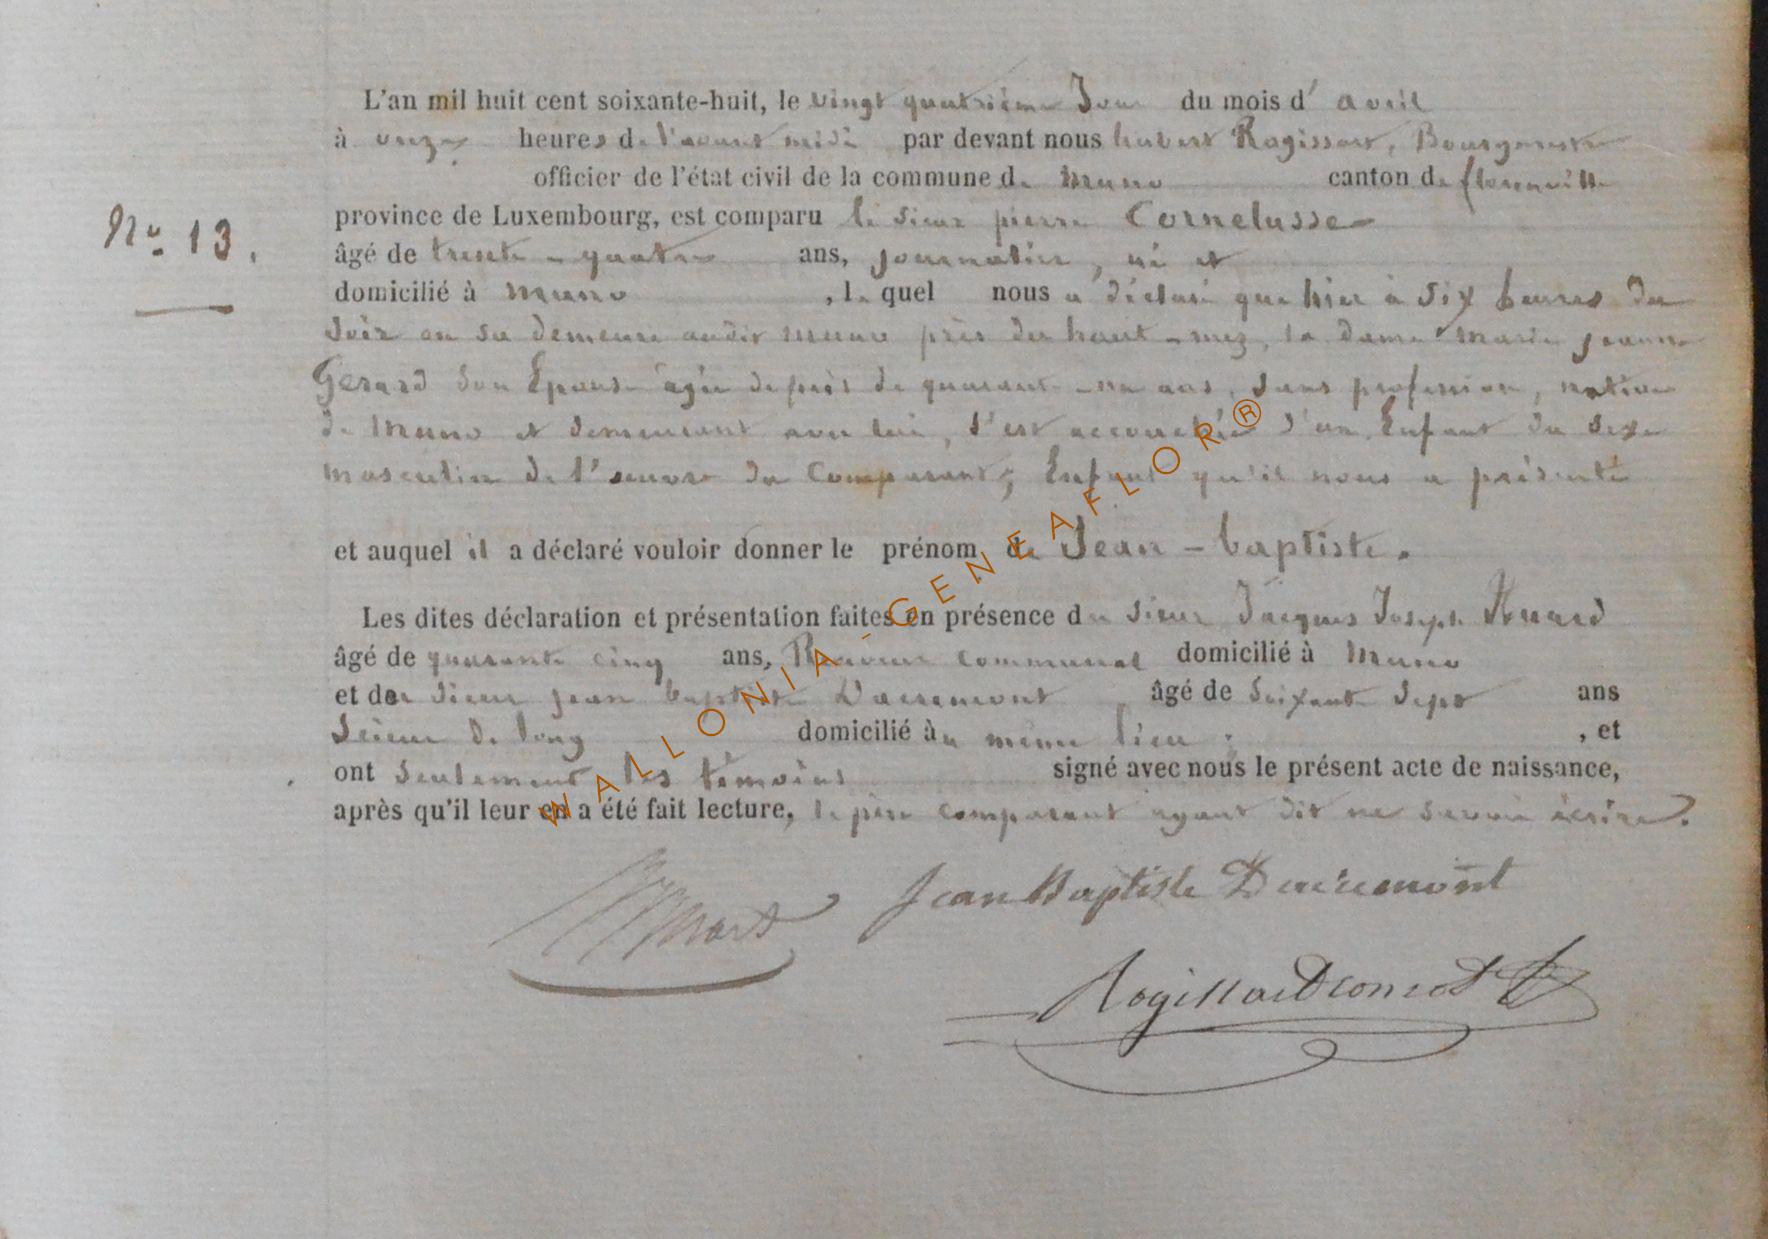 L'an mil huit cent soixante-huit, le vingt quatrième Jour du mois d' avril
à onze heures de l'avant midi par devant nous hubert Rogissart, Bourgmestre
officier de l'état civil de la commune de Muno canton de florenville
N° 13.
province de Luxembourg, est comparu le sieur pierre Cornelusse
âgé de trente-quatre ans, journalier, né et
domicilié à Muno, le quel nous a déclaré que hier à six heures du
soir en sa demeure audit Muno près du haut-mez, la dame Marie jeanne
Gerard son Epouse âgée de près de quarante-un ans, sans profession, native
de Muno et demeurant avec lui, s'est accouchée d'un Enfant du sexe
masculin de l'œuvre du Comparant; Enfant qu'il nous a présenté
et auquel il a déclaré vouloir donner le prénom de Jean-baptiste.
Les dites déclaration et présentation faites en présence du sieur Jacques Joseph Huard
âgé de quarante cinq ans, Receveur communal domicilié à Muno
et du sieur jean baptiste Dacremont âgé de soixante sept ans
Scieur de long domicilié au même lieu; , et
ont seulement les témoins signé avec nous le présent acte de naissance,
après qu'il leur en a été fait lecture, le père comparant ayant dit ne savoir écrire.
Jean Baptiste Dacremont
WALLONIA-GENEAFLOR®